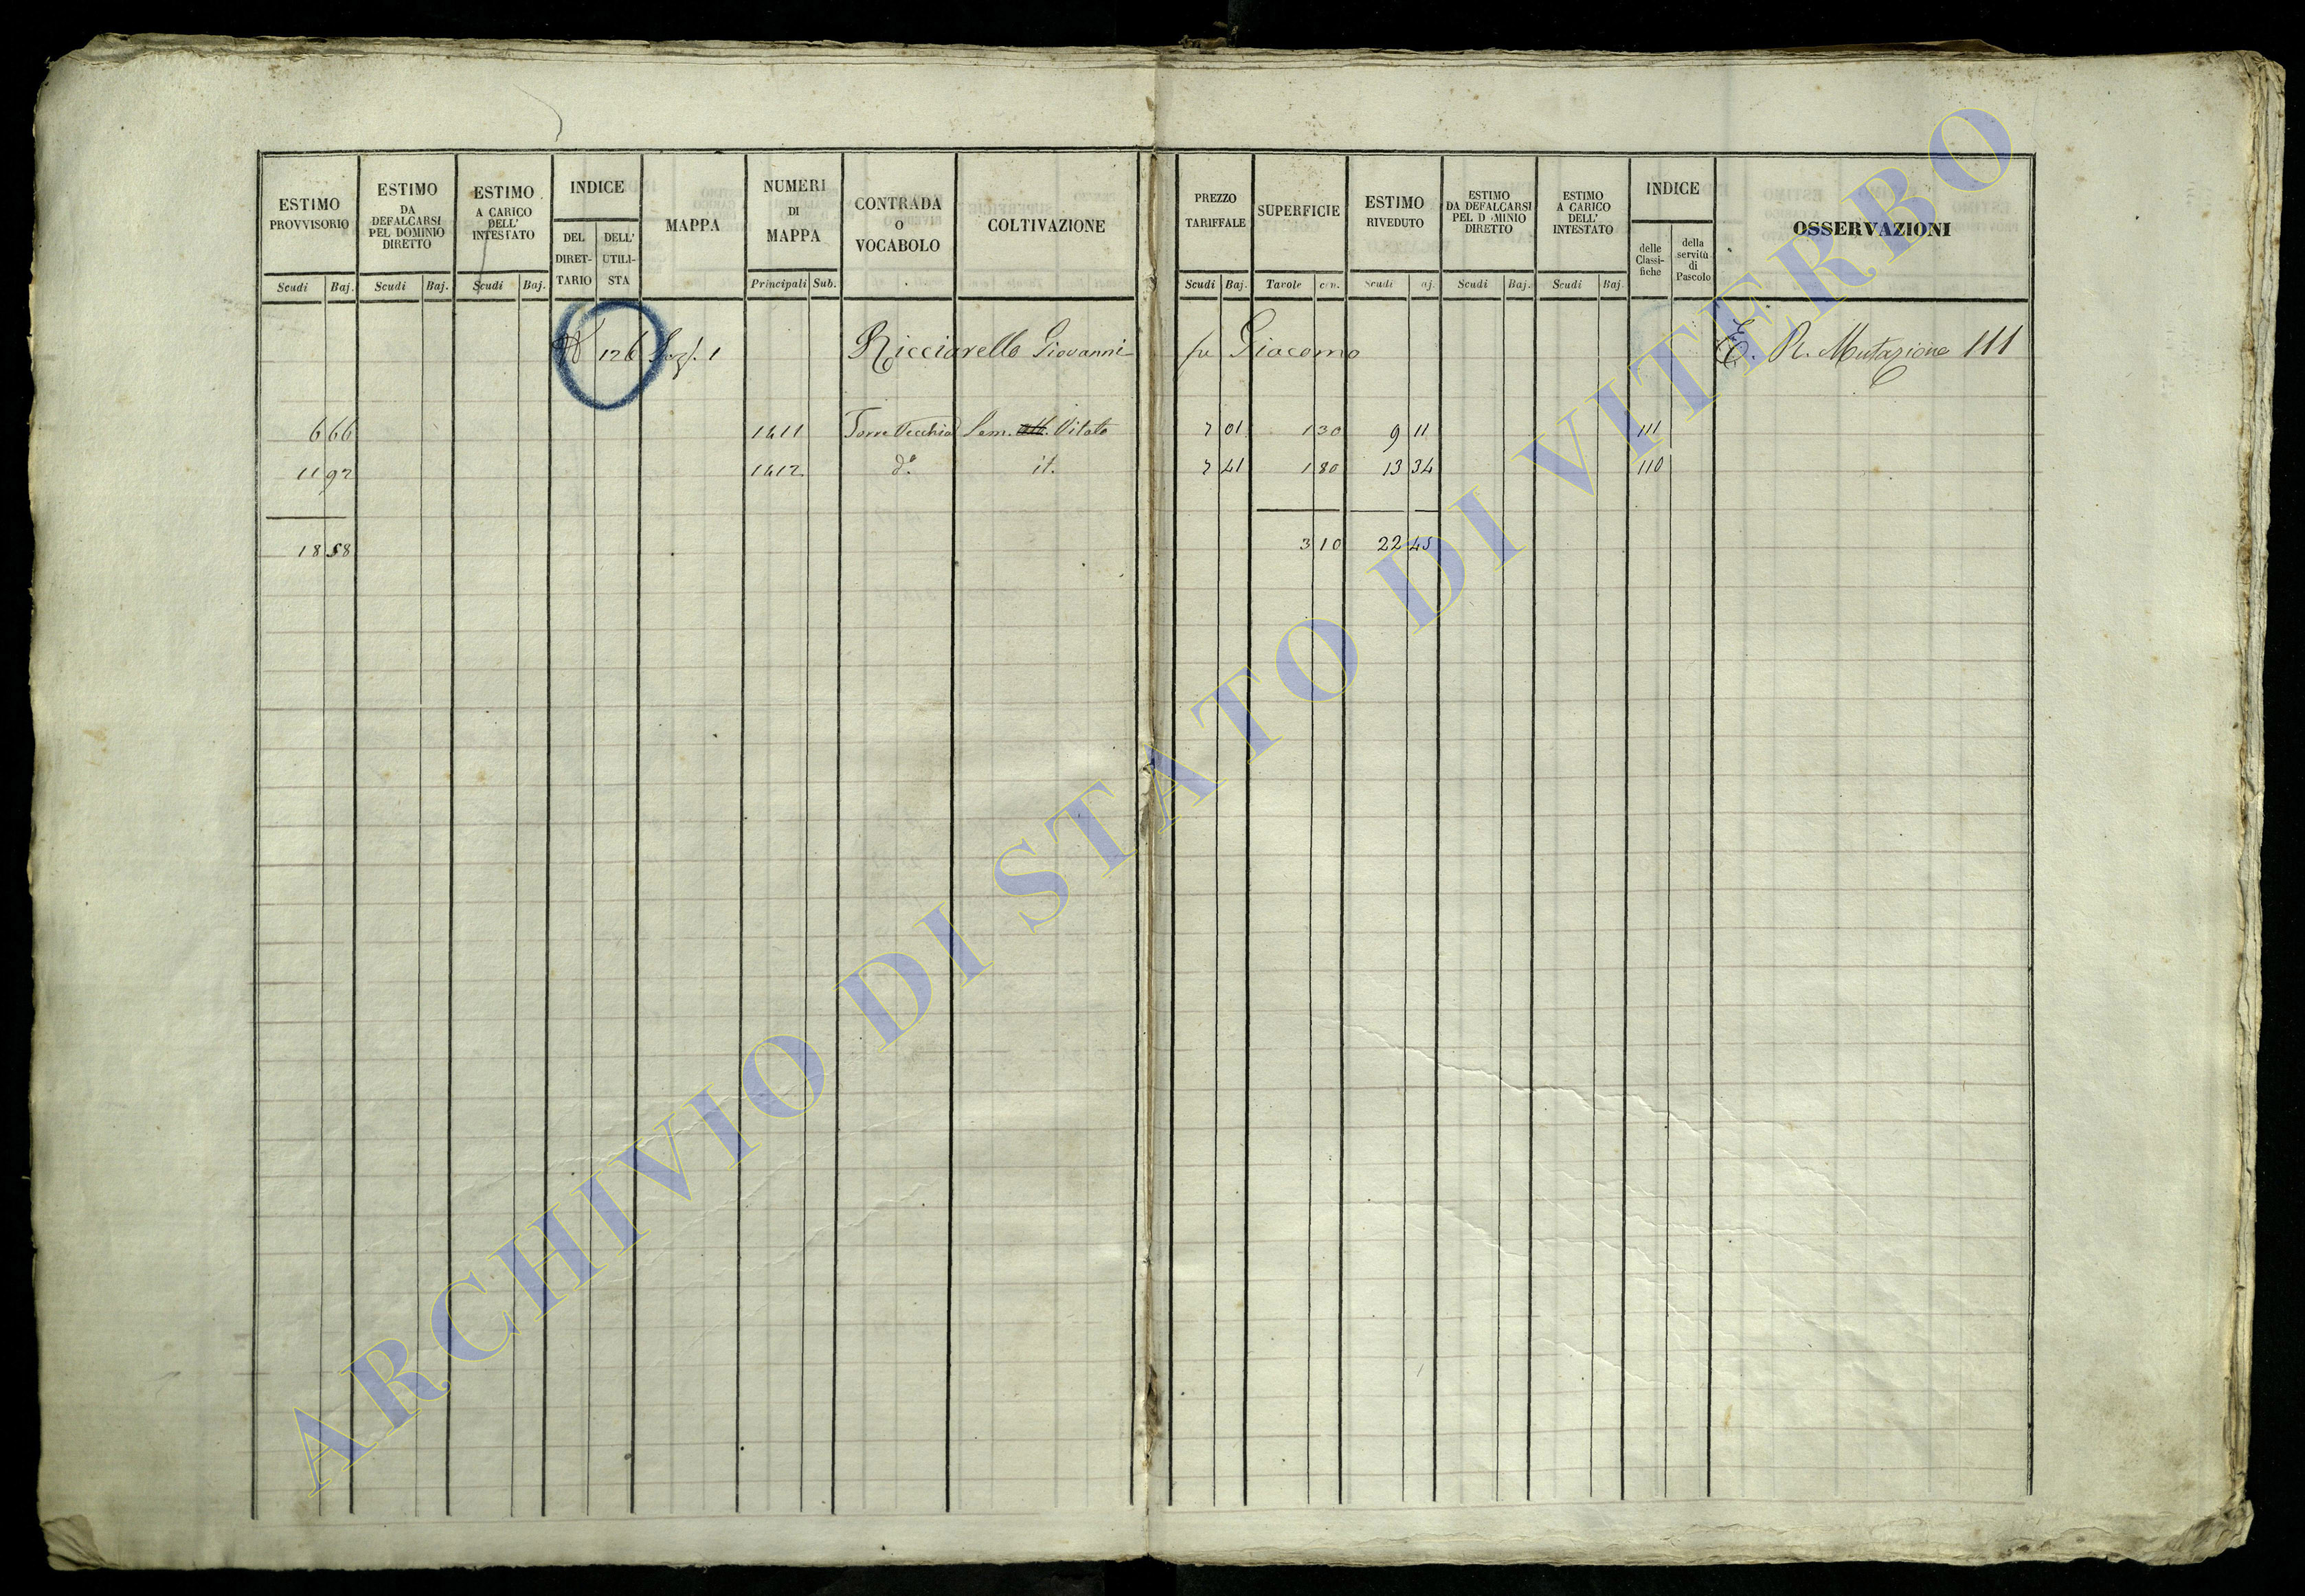 ESTIMO PROVVISORIO
Scudi Baj.
ESTIMO DA DEFALCARSI PEL DOMINIO DIRETTO
Scudi Baj.
ESTIMO A CARICO DELL' INTESTATO
Scudi Baj.
INDICE
DEL DIRET-TARIO
DELL' UTILI-STA
MAPPA
NUMERI DI MAPPA
Principali Sub.
CONTRADA O VOCABOLO
COLTIVAZIONE
PREZZO TARIFFALE
Scudi Baj.
SUPERFICIE
Tavole cen.
ESTIMO RIVEDUTO
Scudi aj.
ESTIMO DA DEFALCARSI PEL D MINIO DIRETTO
Scudi Baj.
ESTIMO A CARICO DELL' INTESTATO
Scudi Baj.
INDICE
delle Classi-fiche
della servitù di Pascolo
OSSERVAZIONI
126 1 Ricciarello Giovanni fu Giacomo E. R. Mutazione 111
6 66 1411 Torre Vecchia Sem. Vitato 7 01 1 30 9 11 111
11 92 1412 d.º it. 7 41 1 80 13 34 110
18 58 3 10 22 45
ARCHIVIO DI STATO DI VITERBO